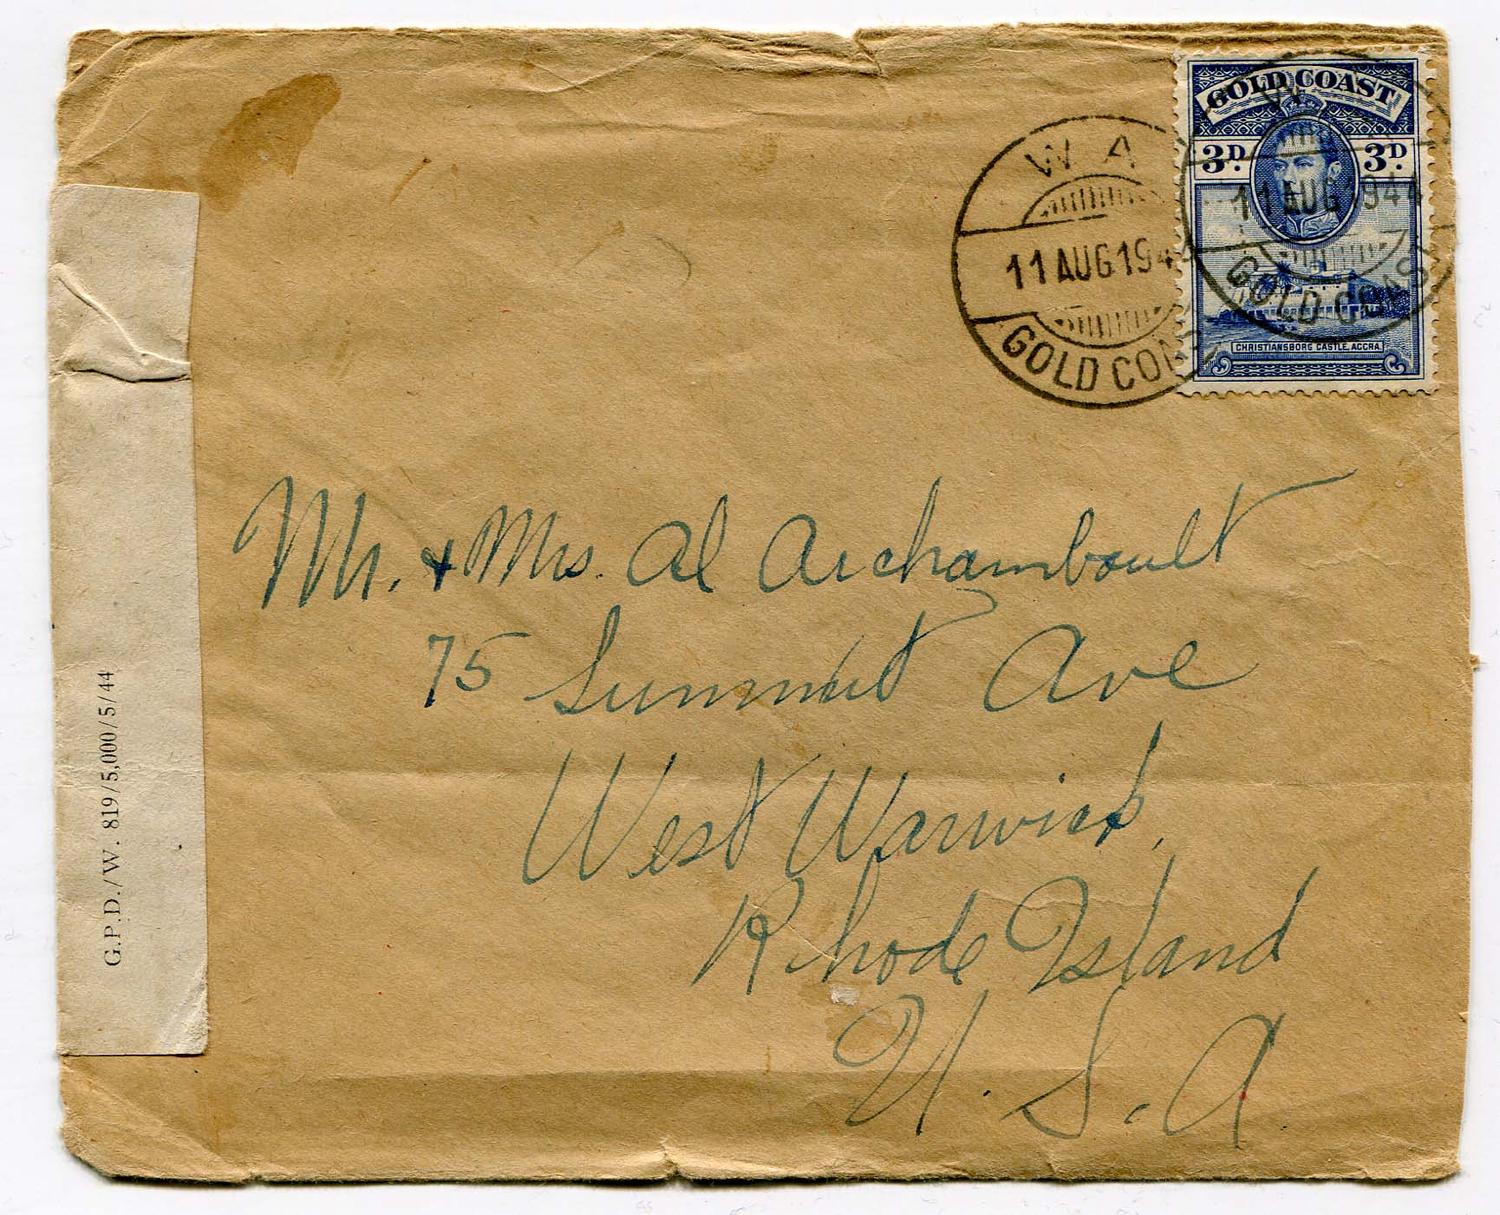 GOLD COAST
3D. 3D.
CHRISTIANSBORG CASTLE, ACCRA.
WA
11 AUG 194
GOLD COAST
W
11 AUG 1944
GOLD COAST
Mr. + Mrs. Al Archamboult
75 Summit Ave
West Warwick,
Rhode Island
U.S.A
G.P.D./W. 819/5,000/5/44